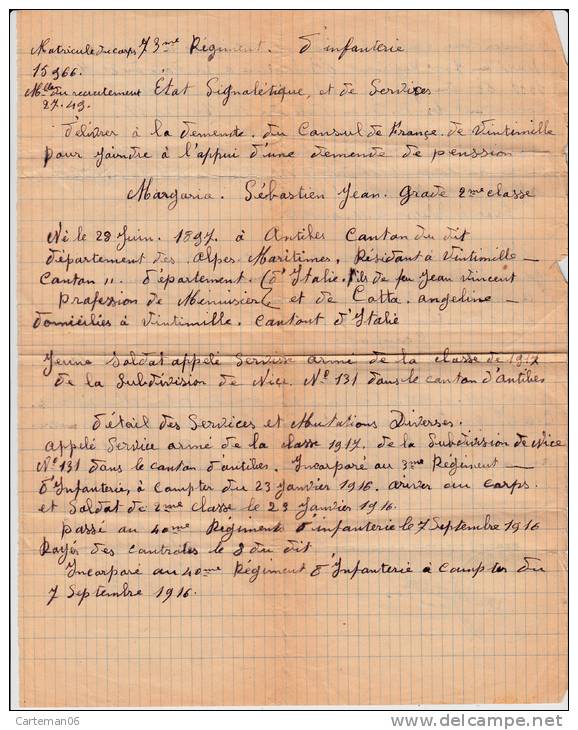 Matricule du corps 73me Régiment. d'infanterie
15966.
Mle du recrutement État Signalétique, et de Services
27.49.
délivrer à la demende. du Consul de France. de Vintimille
pour joindre à l'appui d'une demende de penssion —
Margaria. Sébastien Jean. Grade 2me classe
Né le 28 Juin. 1897. à Antibes Canton du dit
département des Alpes. Maritimes. Résidant à Vintimille —
Canton ,, . département. d'Italie. fils de feu Jean Vincent
profession de Menusier et de Catta. angeline —
domiciliés à Vintimille. Cantont d'Italie
Jeune Soldat appelé Service armé de la classe de 1917
de la Subdivision de Nice. No 131 dans le canton d'Antibes
détail des Services et Mutations Diverses.
appelé Service armé de la classe 1917. de la Subdivission de Nice
No 131 dans le canton d'antibes. Incorporé au 3me Régiment —
d'Infanterie, à Compter du 23 Janvier 1916. arriver au Corps.
et Soldat de 2me classe le 23 Janvier 1916.
passé au 40me Régiment d'infanterie le 7 Septembre 1916
Rayés des controles le 8 du dit
Incorporé au 40me Régiment d'Infanterie à Compter du
7 Septembre 1916.
Carteman06
www.delcampe.net